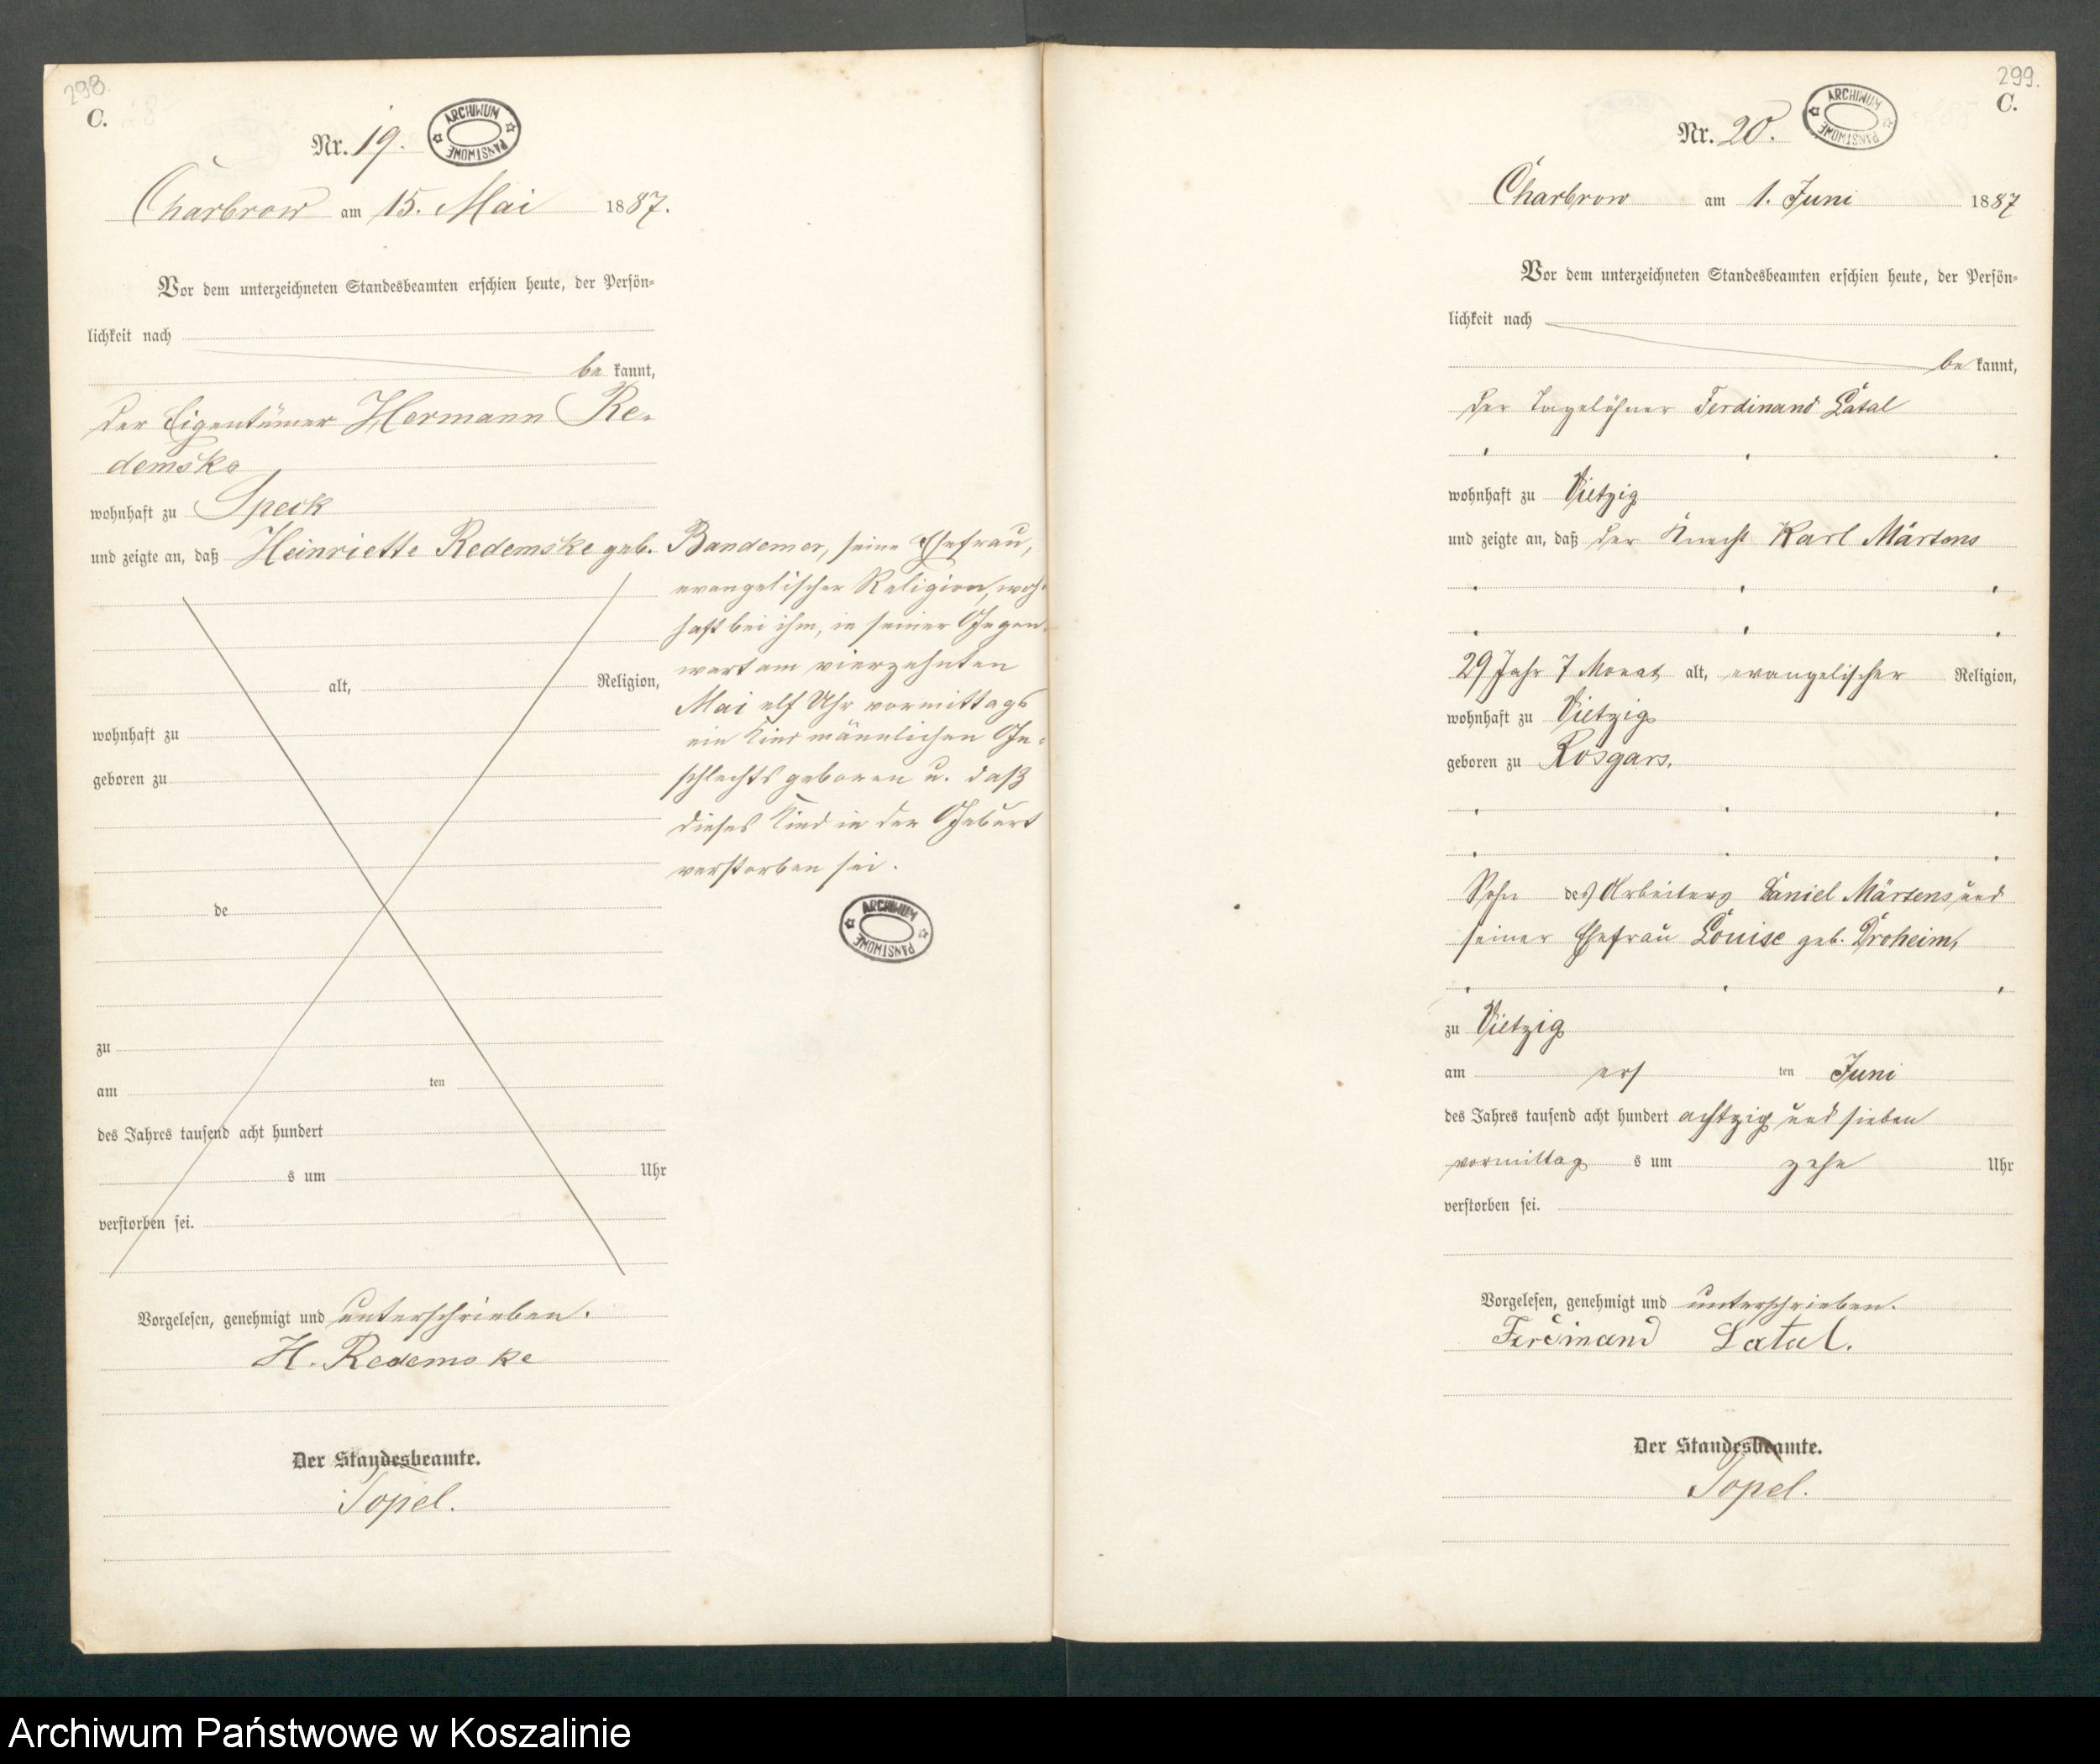 298.
C.
Nr. 19.
ARCHIWUM PAŃSTWOWE
Charbrow am 15. Mai 1887.
Vor dem unterzeichneten Standesbeamten erschien heute, der Persön-
lichkeit nach
be kannt,
der Eigentümer Hermann Re-
demske
wohnhaft zu Speck
und zeigte an, daß Heinriette Redemske geb. Bandemer, seine Ehefrau,
evangelischer Religion, wohn-
haft bei ihm, in seiner Gegen-
wart am vierzehnten
Mai elf Uhr vormittags
ein Kind männlichen Ge-
schlechts geboren u. daß
dieses Kind in der Geburt
verstorben sei.
ARCHIWUM PAŃSTWOWE
alt, Religion,
wohnhaft zu
geboren zu
de
zu
am ten
des Jahres tausend acht hundert
s um Uhr
verstorben sei.
Vorgelesen, genehmigt und unterschrieben.
H. Redemske
Der Standesbeamte.
Topel.
299.
C.
Nr. 20.
ARCHIWUM PAŃSTWOWE
Charbrow am 1. Juni 1887
Vor dem unterzeichneten Standesbeamten erschien heute, der Persön-
lichkeit nach
be kannt,
der Tagelöhner Ferdinand Latal
wohnhaft zu Vietzig
und zeigte an, daß der Knecht Karl Märtens
29 Jahr 7 Monat alt, evangelischer Religion,
wohnhaft zu Vietzig
geboren zu Rosgars.
Sohn des Arbeiters Daniel Märtens und
seiner Ehefrau Louise geb. Droheim,
zu Vietzig
am ers ten Juni
des Jahres tausend acht hundert achtzig und sieben
vormittag s um zehn Uhr
verstorben sei.
Vorgelesen, genehmigt und unterschrieben.
Ferdinand Latal.
Der Standesbeamte.
Topel.
Archiwum Państwowe w Koszalinie